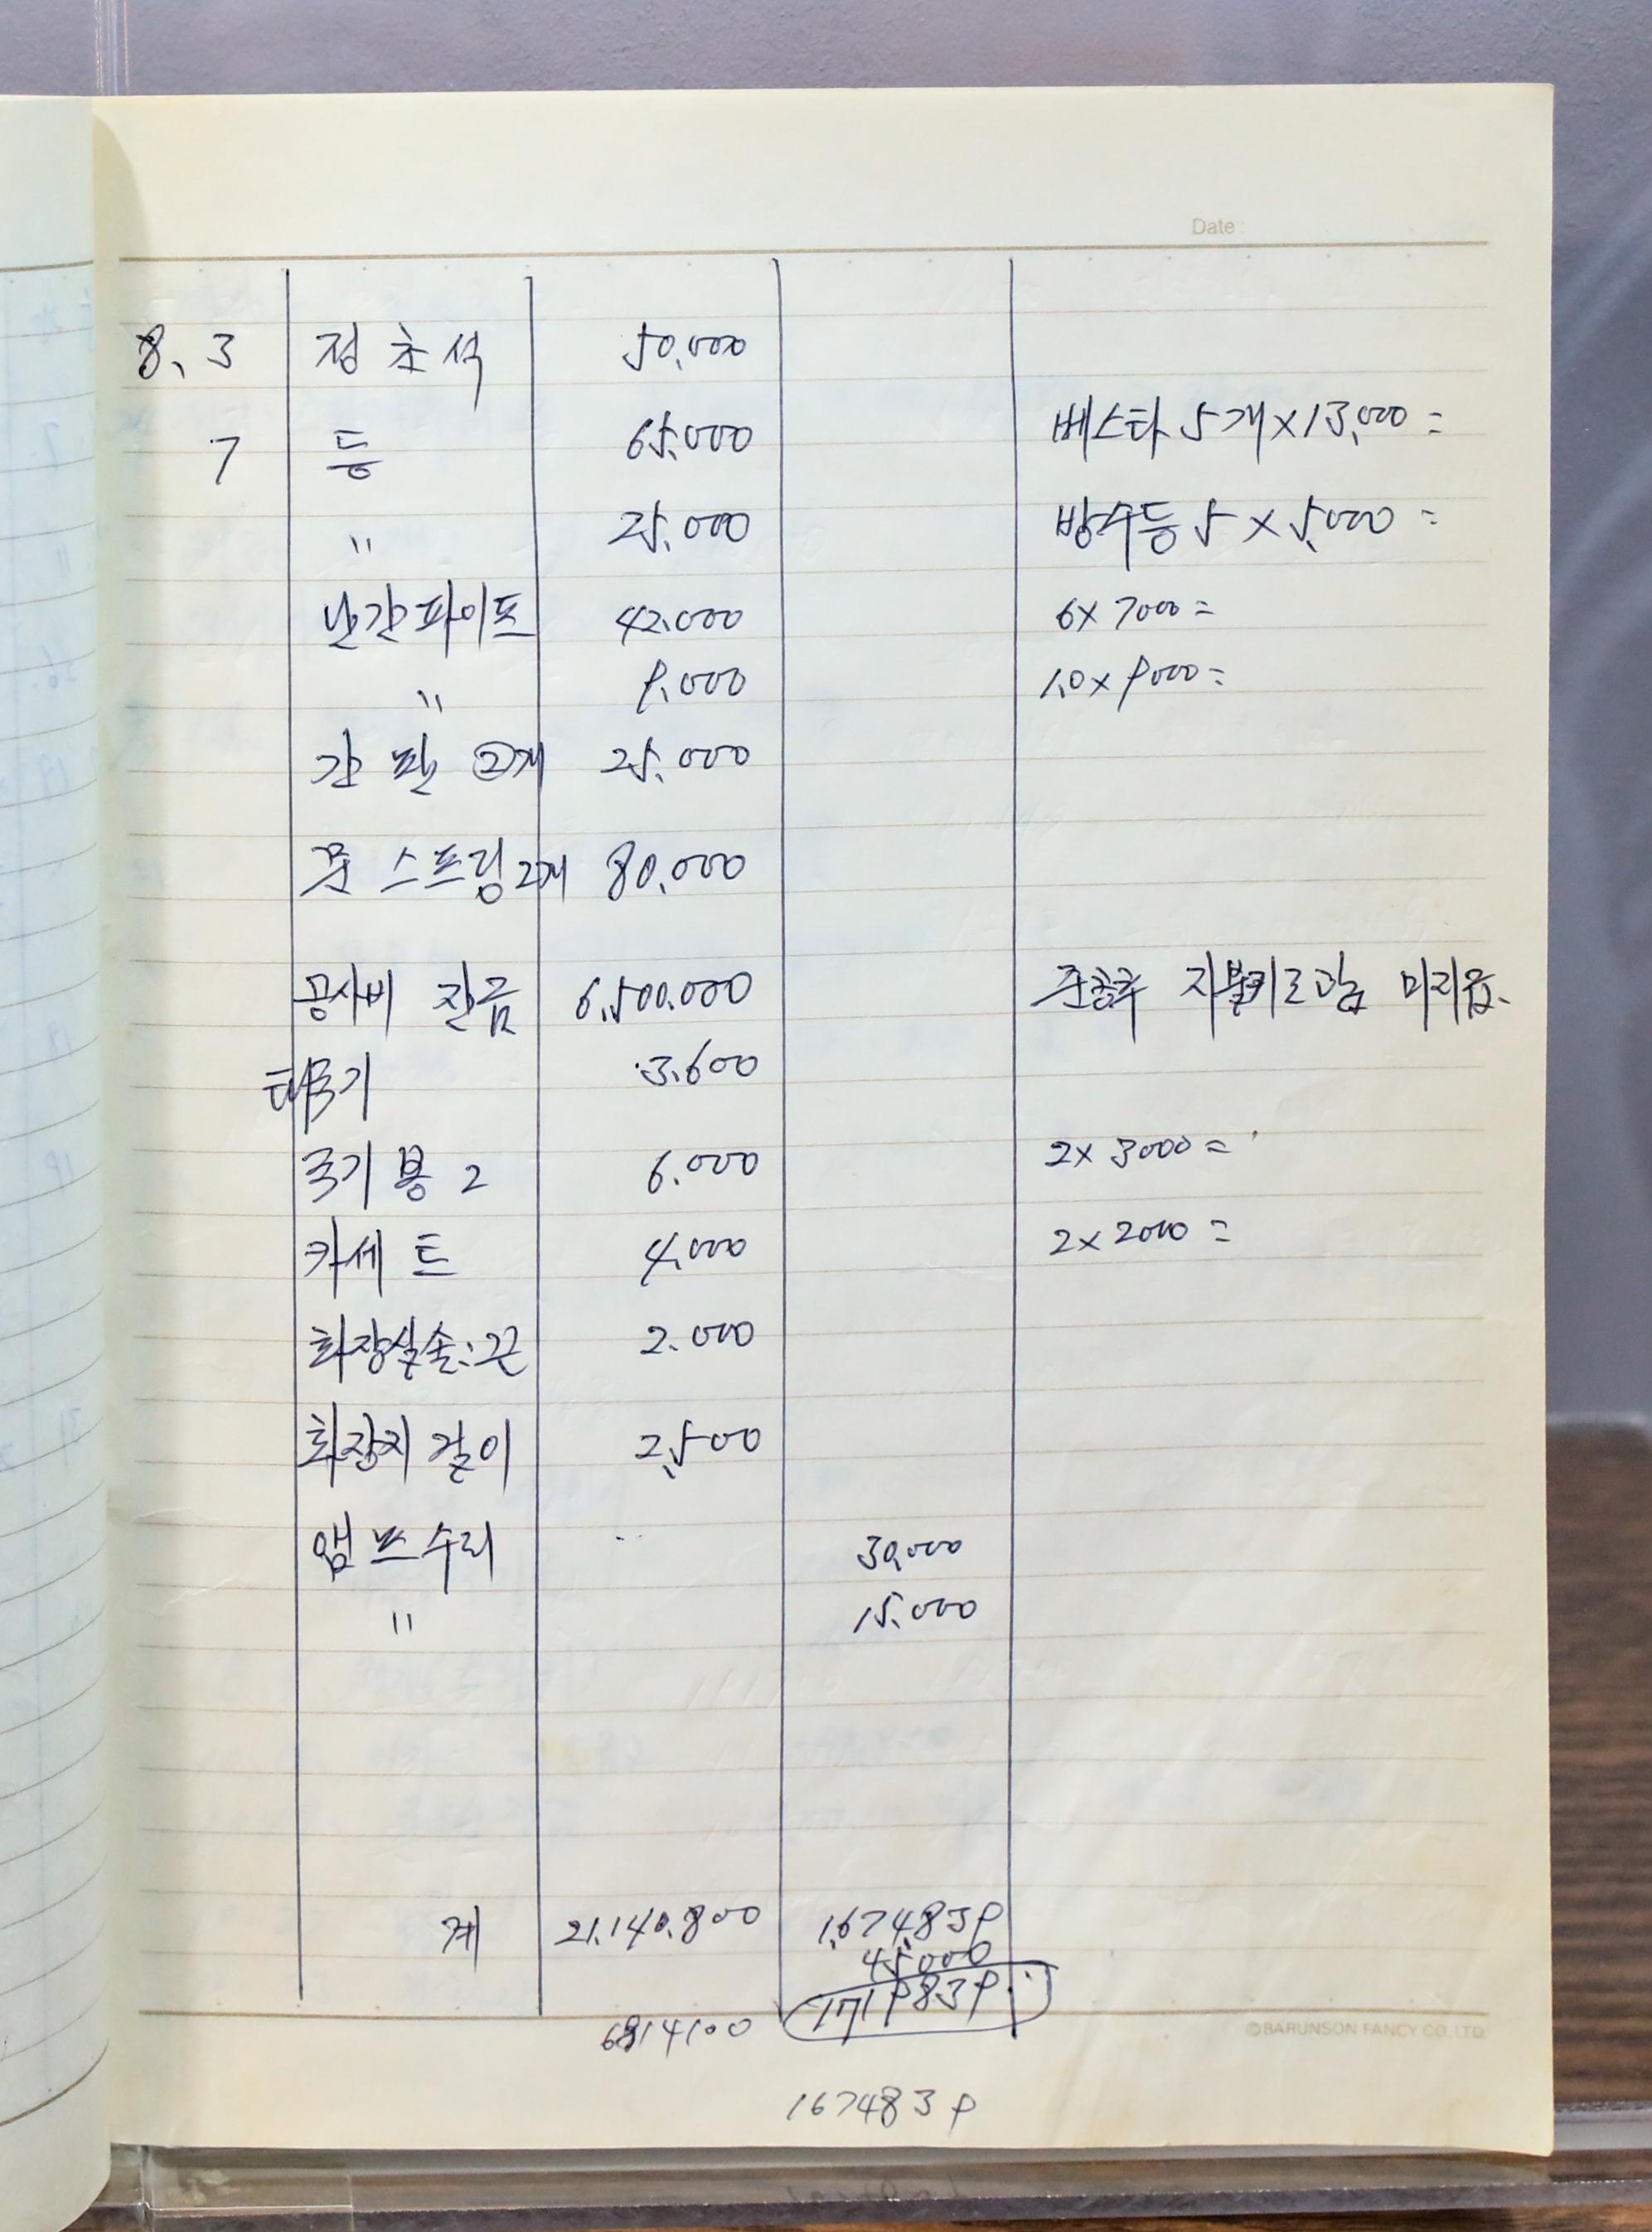 Date
8. 3 정초석 50.000
7 등 65.000 베스타 5개×13,000 =
" 25.000 방수등 5 × 5,000 =
난간파이프 42.000 6× 7000 =
" 9.000 1.0 × 9000 =
간판 ②개 25.000
문 스프링 2개 80.000
공사비 잔금 6,500.000 준공후 지불키로 함 미리줌.
태극기 3.600
국기봉 2 6.000 2× 3000 =
카세트 4.000 2× 2000 =
화장실솔:끈 2.000
화장지 걸이 2,500
앰프수리 30,000
" 15.000
계 21.140.800 1,674,839
45000
1719839
6814100
©BARUNSON FANCY CO. LTD.
1674839